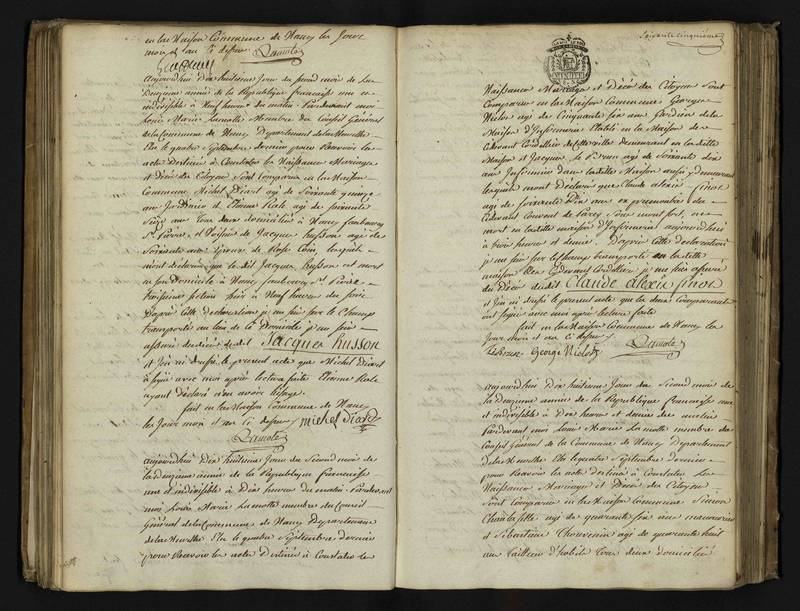 en la Maison Commune de Nancy les Jour
mois et an ci dessus Lamotte
aujourd'hui Dix huitieme Jour du second mois de La
Deuxieme année de la Republique francaise une et
indivisible à Neuf heures du matin Pardevant moi
Louis Marie Lamotte Membre du Conseil General
de la Commune de Nancy Departement de la Meurthe
Elu le quatre Septembre dernier pour Recevoir les
actes destinés à Constater les Naissances Mariages
et Décès des Citoyens Sont Comparus en la Maison
Commune Michel Diart agé de Soixante quinze
ans Jardinier et Etienne Kale agé de soixante
Seize ans tous deux domiciliés à Nancy faubourg
St. Pierre, et Voisins de Jacques husson agé de
Soixante ans Epoux de Rose Coin, lesquels
mont declarés que le dit Jacques husson est mort
en son Domicile à Nancy faubourg St. Pierre
troisieme section hier à Neuf heures du soir
Daprès cette déclaration je me suis sur le Champ
transporté au lieu de ce Domicile je me suis
assuré du décès du dit Jacques husson
et j'en ai dressé le present acte que Michel Diart
à signé avec moi après lecture faite Etienne Kale
ayant déclaré n'en avoir l'usage.
fait en la Maison Commune de Nancy
les Jour mois et an ci dessus michel Diart
Lamotte
aujourd'hui Dix huitieme Jour du Second mois de
la deuxieme année de la Republique francaise
une et indivisible à Dix heures du matin Pardevant
moi Louis Marie Lamotte membre du Conseil
Général de la Commune de Nancy Departement
de la Meurthe Elu le quatre Septembre dernier
pour Recevoir les actes destinés à Constater les
Soixante cinquieme
Naissances Mariages et Décès des Citoyens Sont
Comparus en la Maison Commune Georges
Niclos agé de Cinquante six ans Gardien de la
Maison d'Infirmerie Etablie en la Maison de
Cidevant Cordeliers de cette ville demeurant en la dite
Maison et Jacques le Brun agé de Soixante dix
ans Infirmier dans la dite Maison aussi y demeurant
lesquels mont Déclaré que Claude alexis finot
agé de soixante Dix ans ex premontré du
Cidevant Couvent de
mort en la dite maison d'Infirmerie aujourd'hui
à trois heures et demie. D'après cette declaration
je me suis sur le champ transporté en la dite
maison des Cidevant Cordeliers je me suis assuré
du Décès du dit Claude alexis finot
et j'en ai dressé le present acte que les deux Comparants
ont signé avec moi après lecture faite
fait en la Maison Commune de Nancy les
Jour mois et an ci dessus Lamotte
George Niclot
aujourd'hui Dix huitieme Jour du Second mois de
la Deuxieme année de la Republique francaise une
et indivisible à Dix heures et demie du matin
Pardevant moi Louis Marie Lamotte membre du
Conseil Général de la Commune de Nancy Departement
de la Meurthe Elu le quatre Septembre dernier
pour Recevoir les actes destinés à Constater les
Naissances Mariages et Décès des Citoyens
Sont Comparus en la Maison Commune Simon
agé de quarante six ans manoeuvre
et Sébastien Thouvenin agé de quarante huit
ans Tailleur d'habits tous deux domiciliés